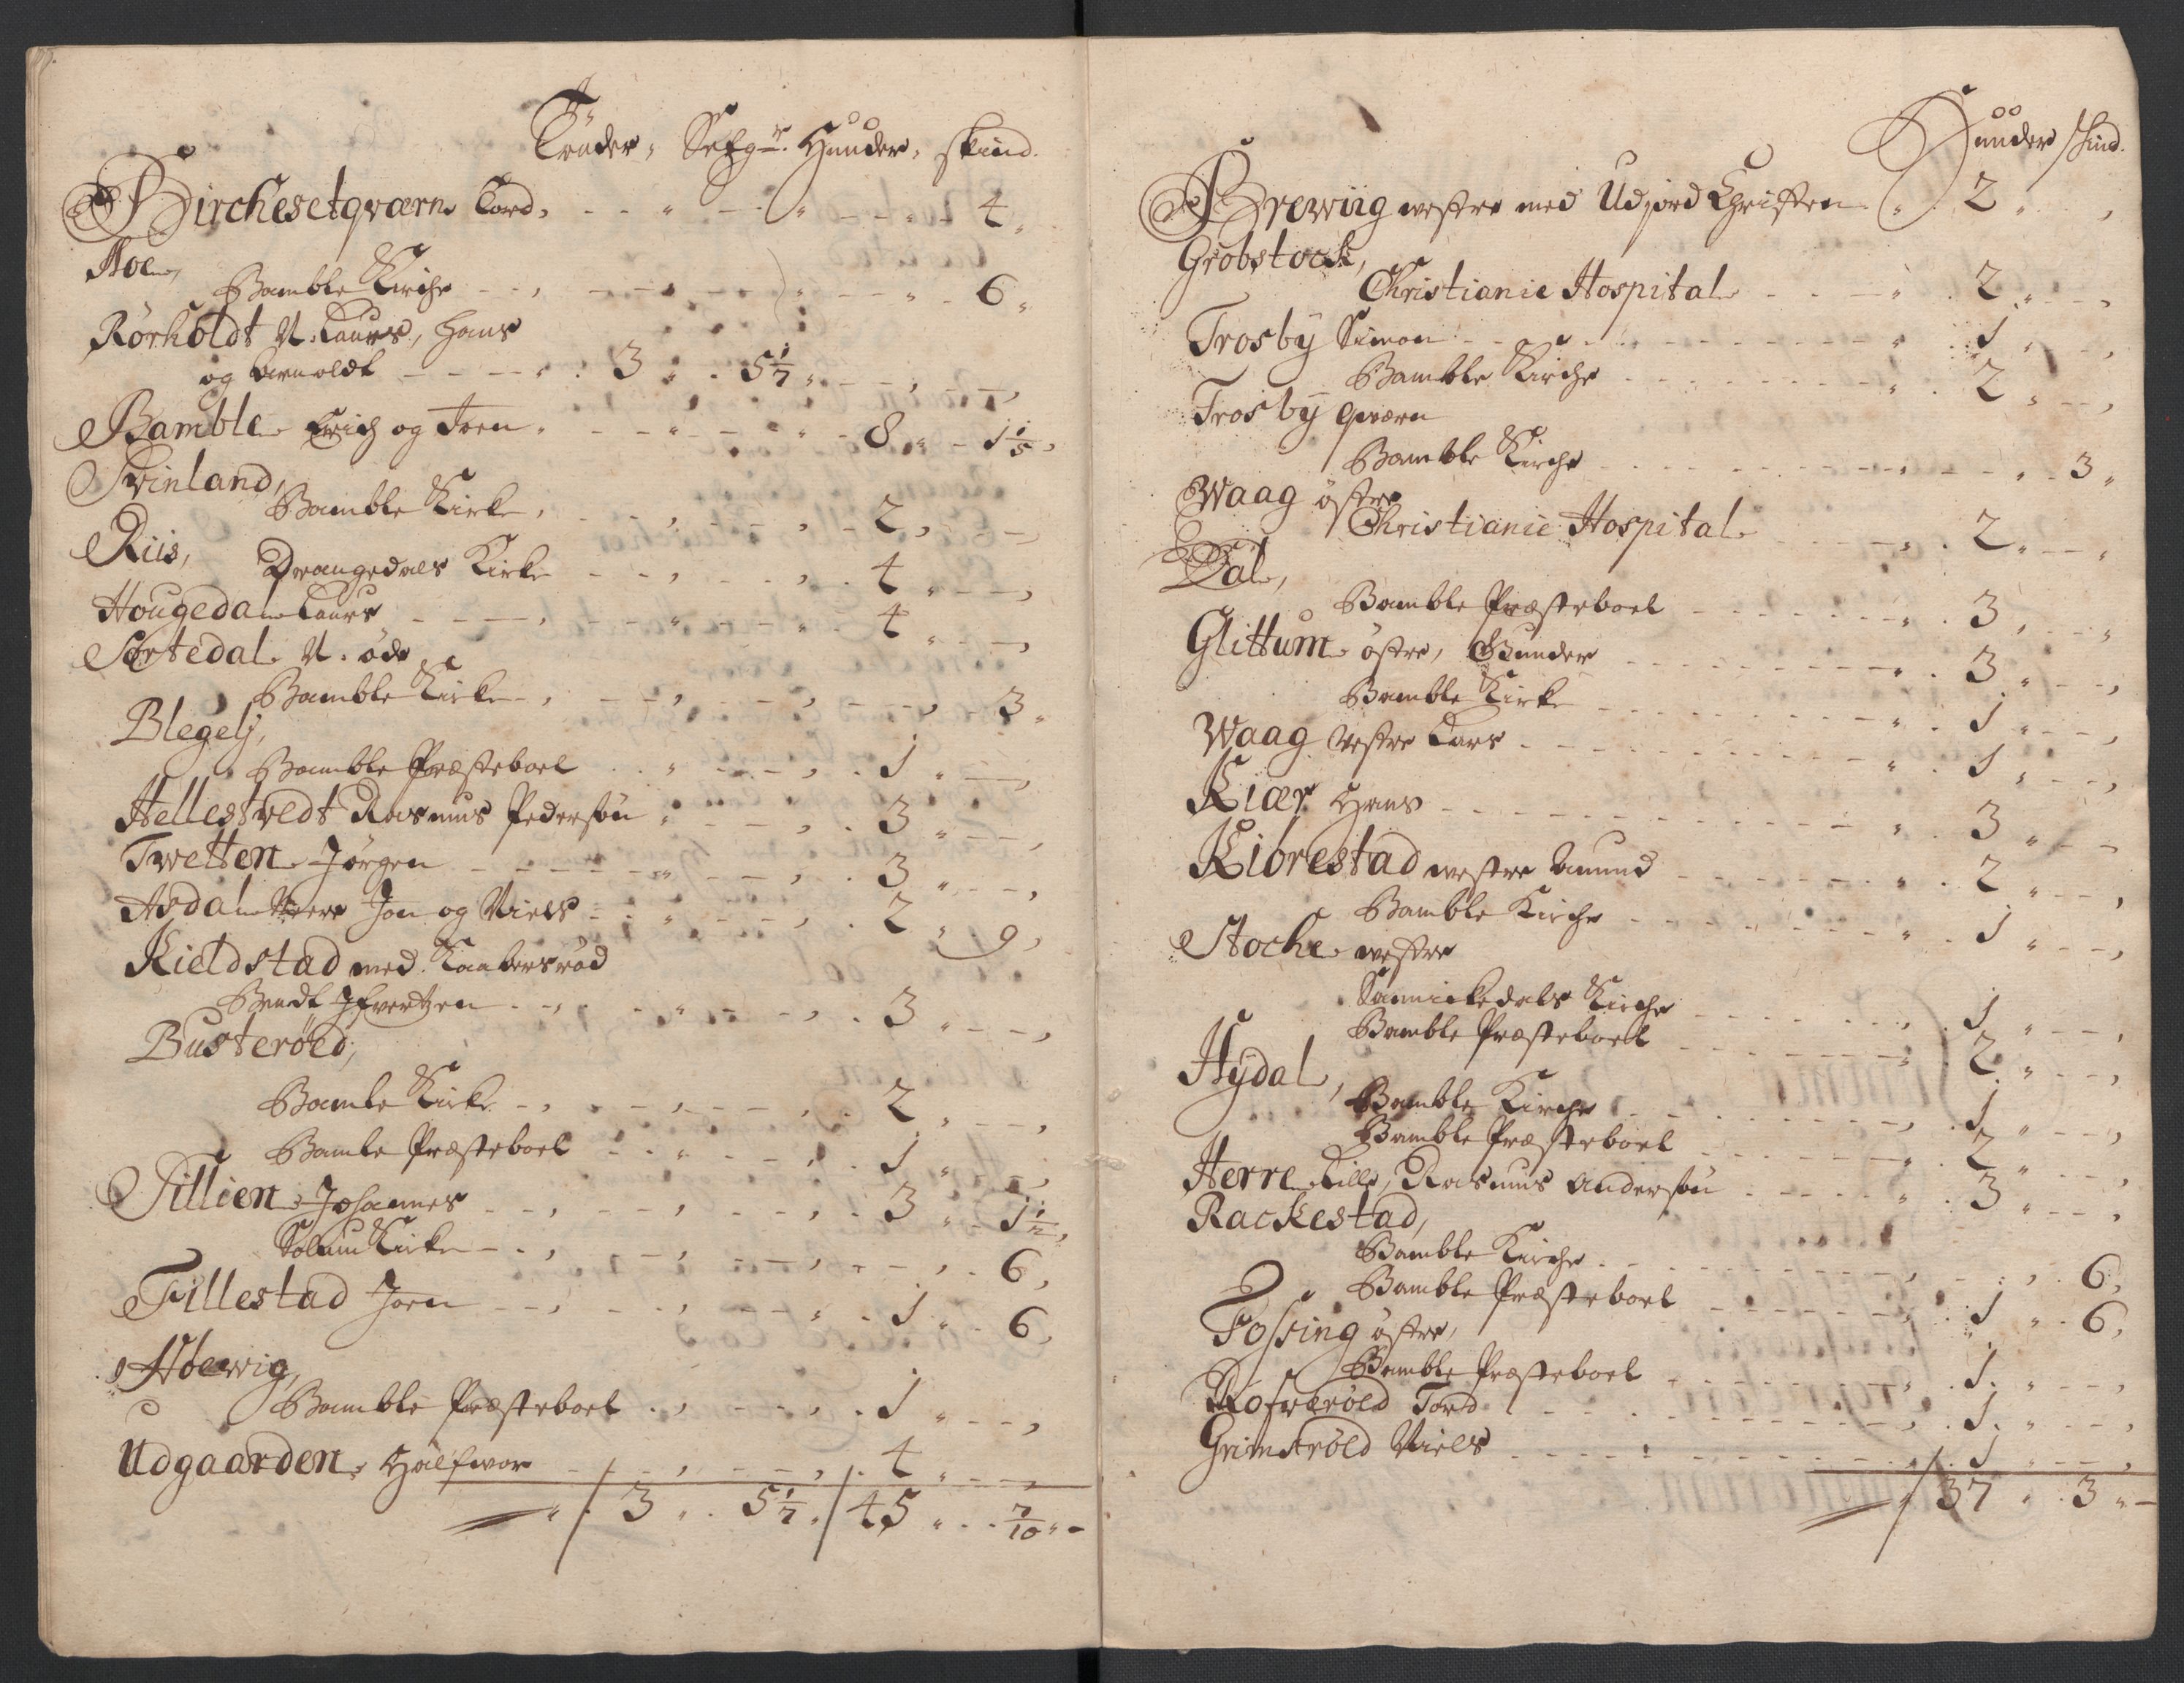 Tønder, Setgr. Hunder, skind.
Birchesetqværn Tord, 4
Hoe,
Bamble Kirche 6
Rörholdt N. Laurs, Hans
og Arnoldt 3 5 1/7
Bamble Erich og Iven 8 1 1/5
Svinland,
Bamble Kirke 2
Riis, Drangedals Kirke 4
Hougedal Laurs 4
Sortedal N. øde
Bamble Kirke 3
Blegelj,
Bamble Præsteboel 1
Hellestvedt Rasmus Pedersøn 3
Tvetten Jörgen 3
Asdal Jon og Niels 2 9
Kieldstad med
Bendt Ifvertzen 3
Busterøed,
Bamle Kirke 2
Bamle Præsteboel 1
Tillien Johannes 3 1 1/2
Solum Kirke 6
Fillestad Joen 1 6
Høewig,
Bamble Præsteboel 1
Udgaarden Halfwor 4
3 5 1/7 45 7/10
Hunder skind.
Brewiig westre med Udjord Christen 2
Grobstock,
Christianie Hospital 2
Trosby Simon 1
Bamble Kirche 2
Trosby qværn
Bamble Kirche 3
Waag östre
Christianie Hospital 2
Dal,
Bamble Præsteboel 3
Glittum östre, Gunder 3
Bamble Kirke 1
Waag Vestre Lars 1
Kiær Hans 3
Kiörestad westre Amund 2
Bamble Kirche 1
Stocke westre
Sannickedals Kirche 1
Bamble Præsteboel 2
Hydal,
Bamble Kirche 1
Bamble Præsteboel 2
Herre Lille, Rasmus Andersøn 3
Rackestad,
Bamble Kirche 6
Bamble Præsteboel 1 6
Fossing östre,
Bamble Præsteboel 1
Rofverøed Tord 1
Grimströed Niels 1
37 3